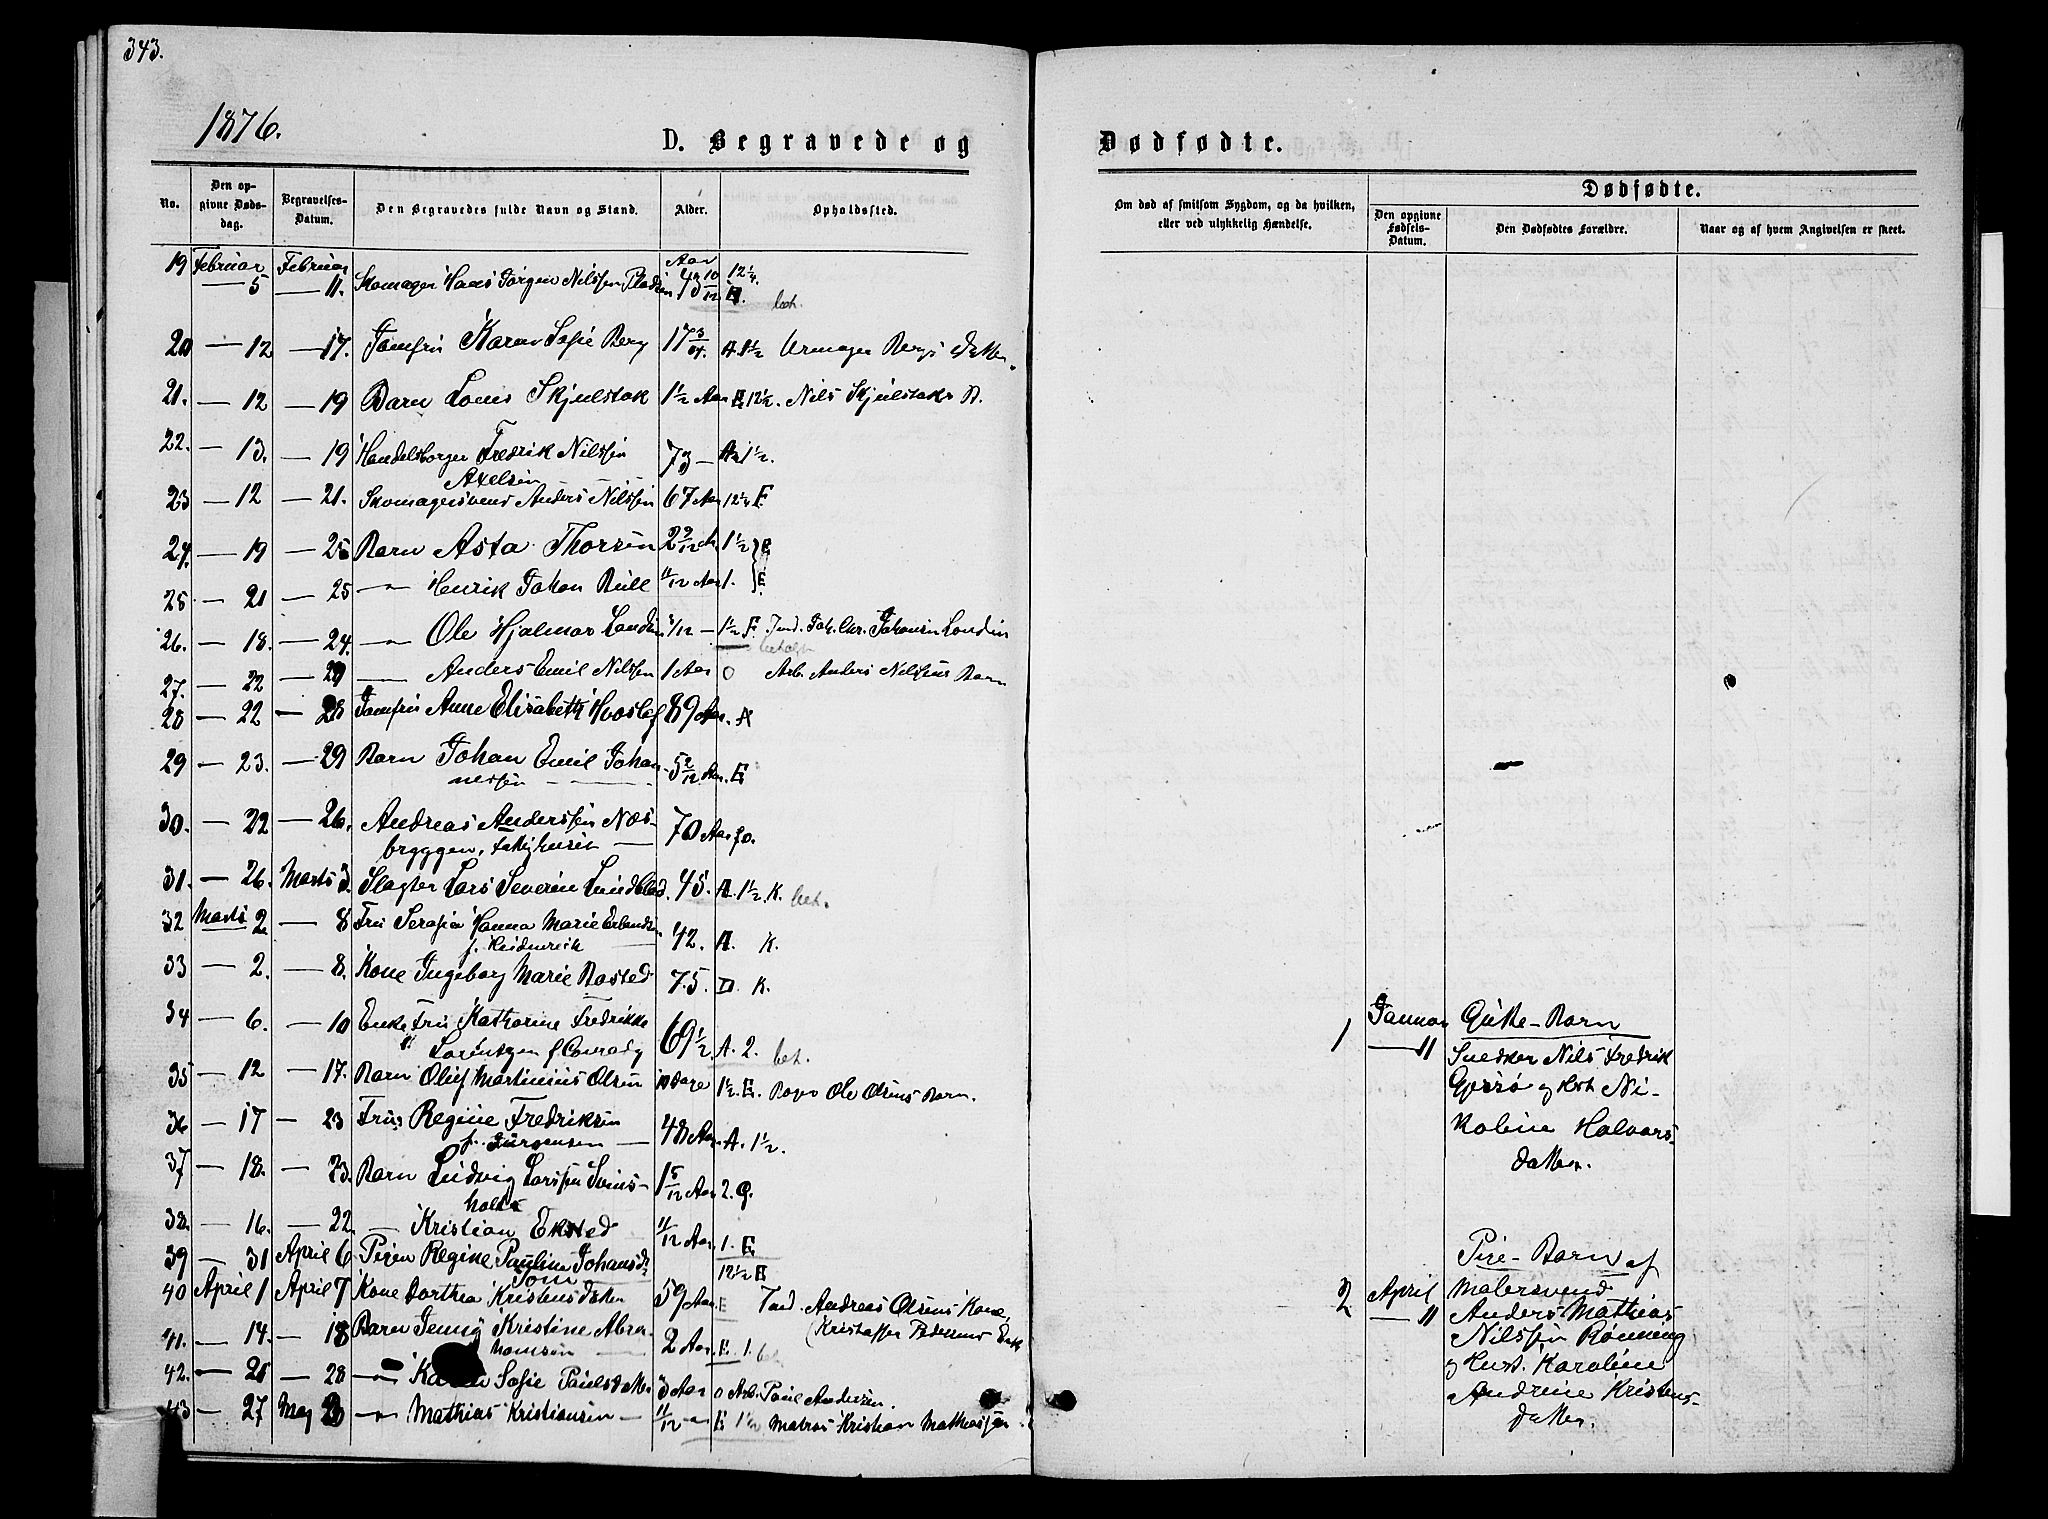 343.
1876.
D. Begravede og
No.
Den opgivne Dødsdag.
Begravelses-Datum.
Den Begravedes fulde Navn og Stand.
Alder.
Opholdssted.
19 Februar 5 Februar 11. Skomager Hans Jørgen Nilssen Aar 43 10/12 12 1/4. E. bet.
20 — 12 — 17. Jomfru Karen Sofie Berg 17 3/4. A. 1 1/2 Urmager Bergs Datter.
21. — 12 — 19 Barn Louis Skjulstak 1 1/2 Aar E 12 1/2. Nils Skjulstaks B.
22. — 13. — 19 Handelsborger Fredrik Nilssen
Axelsen 73 — A 1 1/2.
23 — 12 — 21. Skomagersvend Anders Nilssen 67 Aar 12 1/4 F.
24. — 19 — 25 Barn Asta Thorsen 2 9/12 A. 1 1/2 E
25 — 21 — 25 — Henrik Johan Bull 11/12 Aar 1. E
26. — 18. — 24. — Ole Hjalmar 1 1/2 F. Ind. Joh. Chr. Johansen Londin
betalt
27. — 22 — 29 — Anders Emil Nilssen 1 Aar 0 Arb. Anders Nilssens Barn
28 — 22 — 28 Jomfru Anne Elisabeth Hvoslef 89 Aar. A
29 — 23. — 29 Barn Johan Emil Johan-
nessen — 5 2/12 Aar. E
30. — 22 — 26. Andreas Anderssen Næs-
bryggen, Fattighuset — 70 Aar
31. — 26. Marts 3. Slagter Lars Severin Lindblad. 45. A. 1 1/2. K. bet.
32 Marts 2 — 8 Fru Serafia Hanna Marie Erlandsen
f. Heidenreich 42. A. K.
33 — 2. — 8. Kone Ingeborg Marie Basted 75. D. K.
34 — 6. — 10 Enke Fru Katharine Fredrikke
Lorentzen f. Conrady 69 1/2. A. 2. bet.
35 — 12 — 17. Barn Oluf Martinius Olsen 10 Dage 1 1/2. E. Bager Ole Olsens Barn.
36 — 17 — 23 Fru Regine Fredriksen
f. Jürgensen — 48 Aar A. 1 1/2.
37 — 18. — 23. Barn Ludvig Larssen Svins-
holt 1 5/12 Aar 2.
38. — 16. — 22. — Kristian Eksted 11/12 Aar 1. E
39 — 31 April 6. Pigen Regine Pauline Johansd. 12 1/2 E
40 April 1 April 7 Kone Dorthea Kristensdatter 59 Aar. E Ind. Andreas Olsens Kone,
(Kristoffer Pedersens Enk
41. — 14. — 18 Barn Jenny Kristine Abra-
hamsen — 2 Aar E. 1. bet.
42. — 21 — 28 — Karen Sofie Paulsdatter 3 Aar 0 Arb. Paul Andersen.
43 — 27 Maj — Mathias Kristiansen — 11/12 — E 1 1/2 Matros Kristian Mathiassen
Dødfødte.
Om død af smitsom Sygdom, og da hvilken, eller ved ulykkelig Hændelse.
Dødfødte.
Den opgivne Fødsels-Datum.
Den Dødfødtes Forældre.
Naar og af hvem Angivelsen er skeet.
1 Januar Gutte-Barn
— 11 Snedker Nils Fredrik
Gjersø og Hst. Ni-
koline Halvors-
datter.
Pige-Barn af
2 April Malersvend
— 11 Anders Mathias
Nilssen Rønning
og Hust. Karoline
Andrine Kristens-
datter.